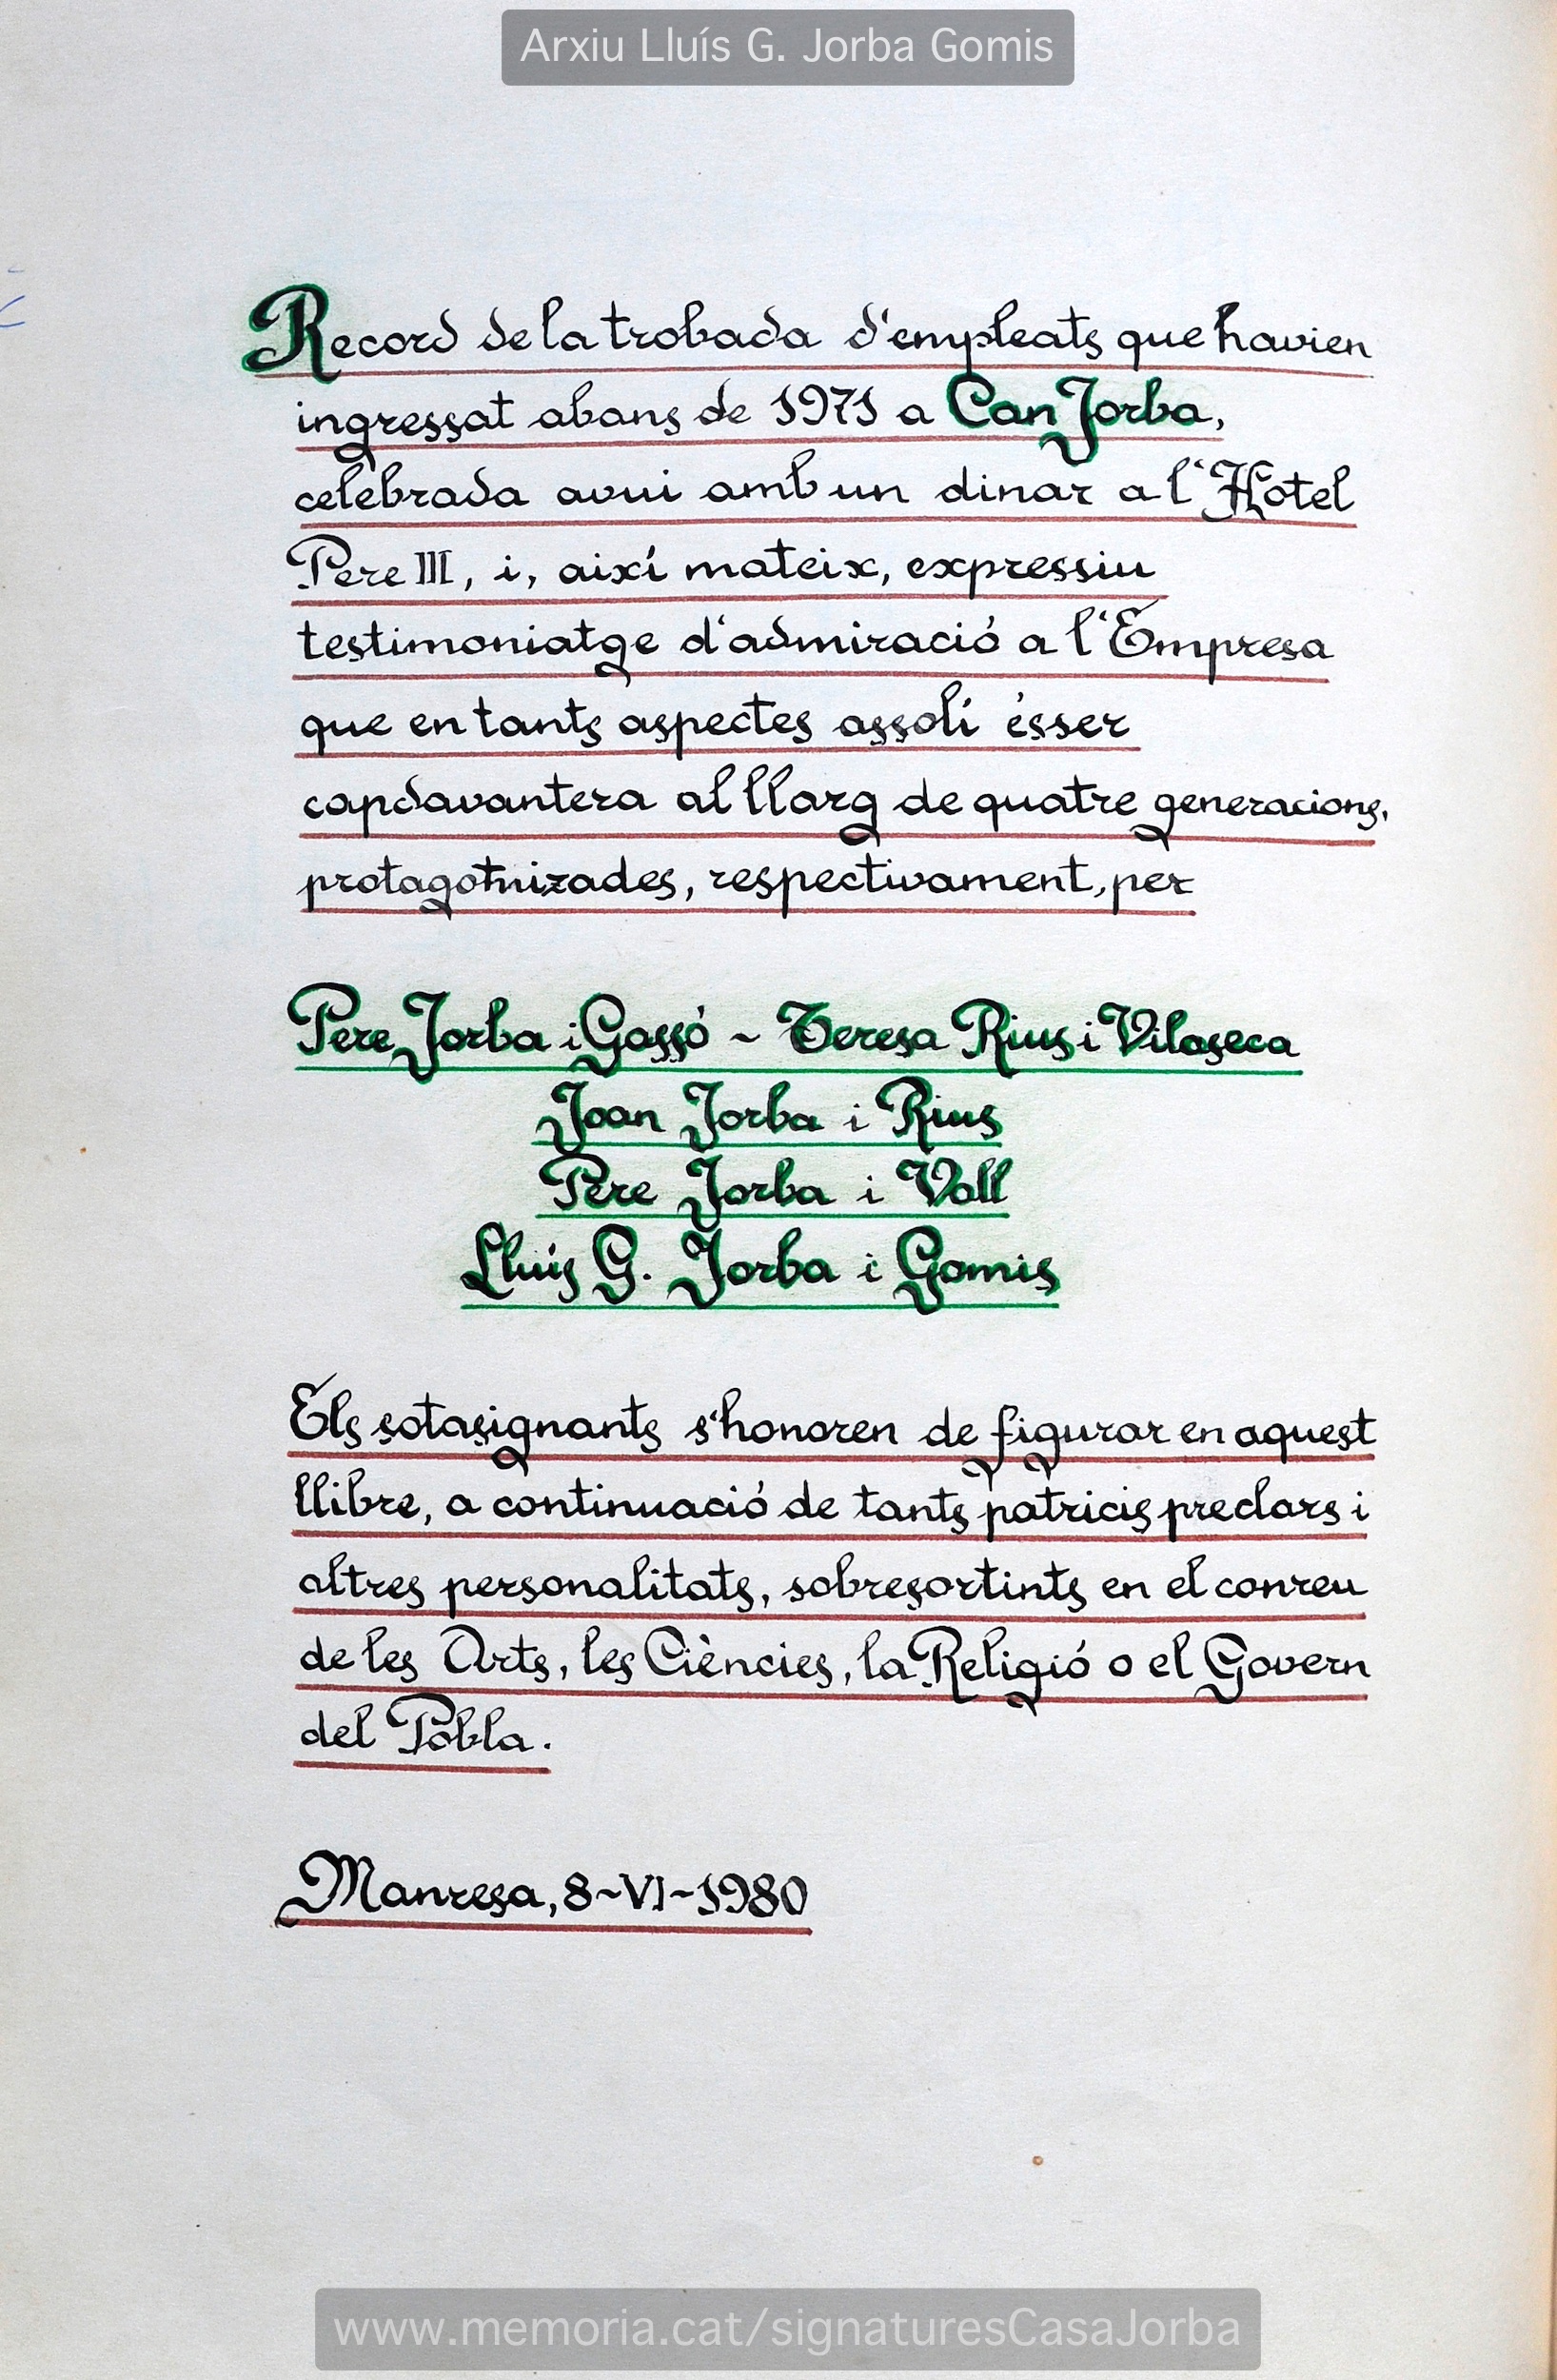 Arxiu Lluís G. Jorba Gomis
Record de la trobada d'empleats que havien
ingressat abans de 1971 a Can Jorba,
celebrada avui amb un dinar a l'Hotel
Pere III, i, així mateix, expressiu
testimoniatge d'admiració a l'Empresa
que en tants aspectes assolí ésser
capdavantera al llarg de quatre generacions,
protagotnizades, respectivament, per
Pere Jorba i Gassó ~ Teresa Rius i Vilaseca
Joan Jorba i Rius
Pere Jorba i Vall
Lluís G. Jorba i Gomis
Els sotasignants s'honoren de figurar en aquest
llibre, a continuació de tants patricis preclars i
altres personalitats, sobresortints en el conreu
de les Arts, les Ciències, la Religió o el Govern
del Pobla.
Manresa, 8~VI~1980
www.memoria.cat/signaturesCasaJorba